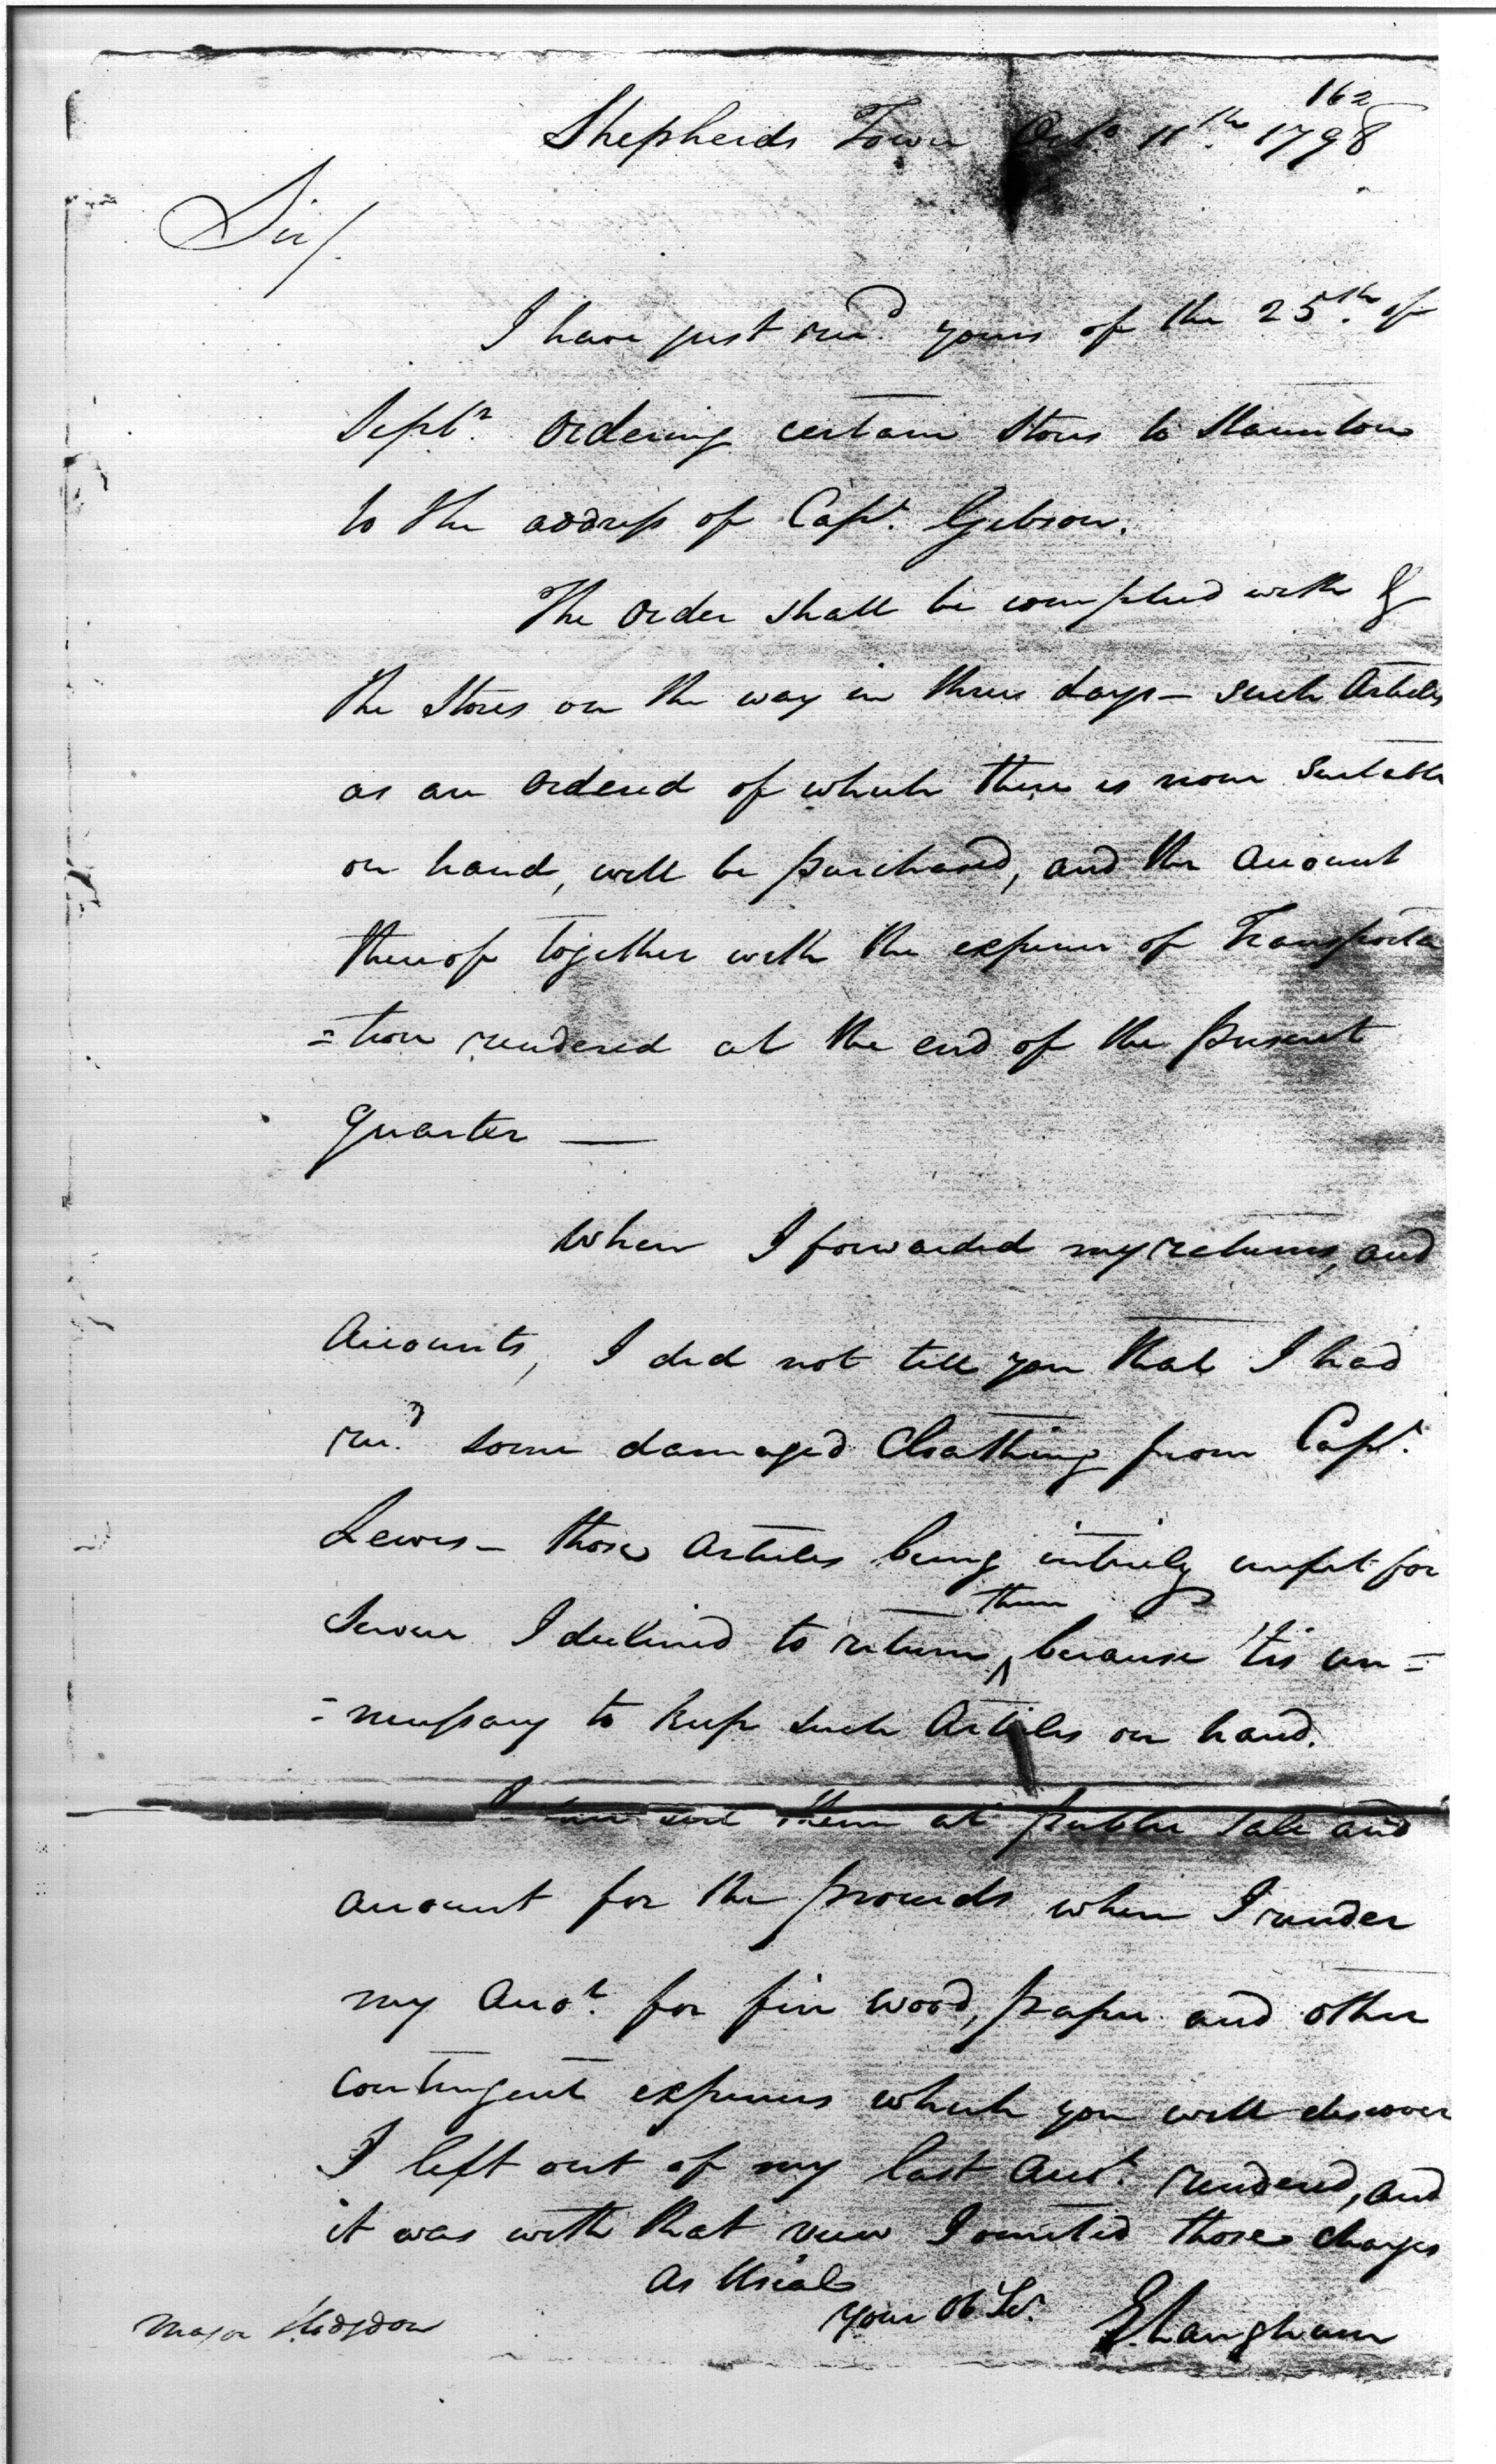 162
Shepherds Town Octo. 11th. 1798
Sir/.
I have just recd. yours of the 25th. of
Septr. Ordering certain Stores to Staunton
to the address of Capt. Gibson.
The Order shall be complied with &
the Stores on the way in three days - such Articles
as are Ordered of which there is none Suitable
on hand, will be purchased, and the Account
thereof together with the expence of Transporta
=tion rendered at the end of the present
quarter —
When I forwarded my returns, and
Accounts, I did not tell you that I had
recd. some damaged Cloathing from Capt.
Lewis - those Articles being intirely unfit for
Service I declined to return them, because 'tis un=
=necessary to keep such Articles on hand.
I sell them at public Sale and
account for the proceeds when I render
my Accot. for fire wood, paper and other
contingent expences which you will discover
I left out of my last Acct. rendered, and
it was with that view I omited those charges
As Usial
your Ob Sr.
E Langham
Major Hodgdon